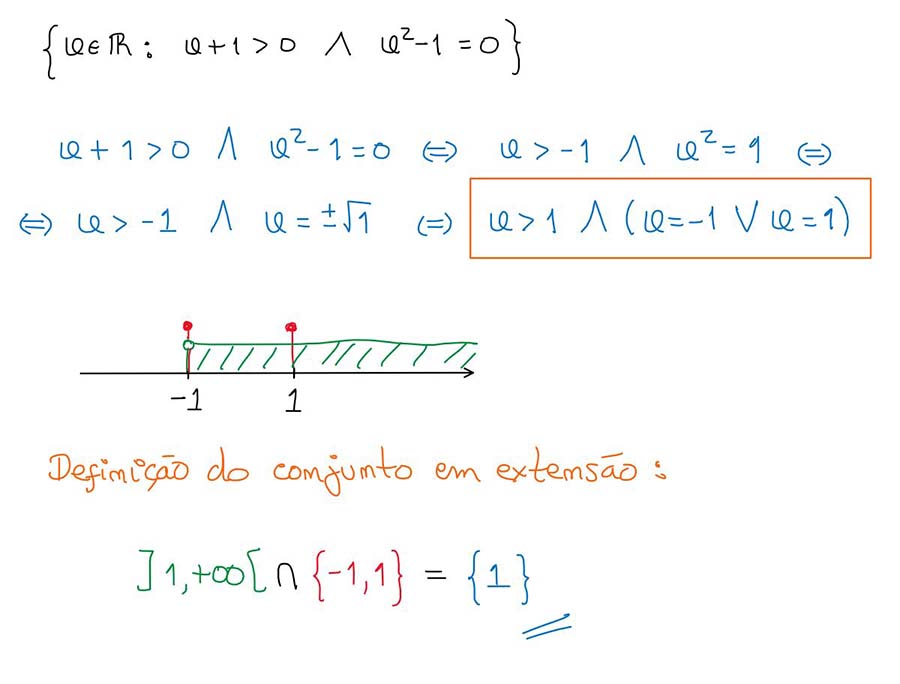 {x∈ℝ: x+1>0 ∧ x²-1=0}
x+1>0 ∧ x²-1=0 ⇔ x>-1 ∧ x²=1 ⇔
⇔ x>-1 ∧ x=±√1 ⇔ x>1 ∧ (x=-1 ∨ x=1)
-1 1
Definição do conjunto em extensão:
]1,+∞[ ∩ {-1,1} = {1}